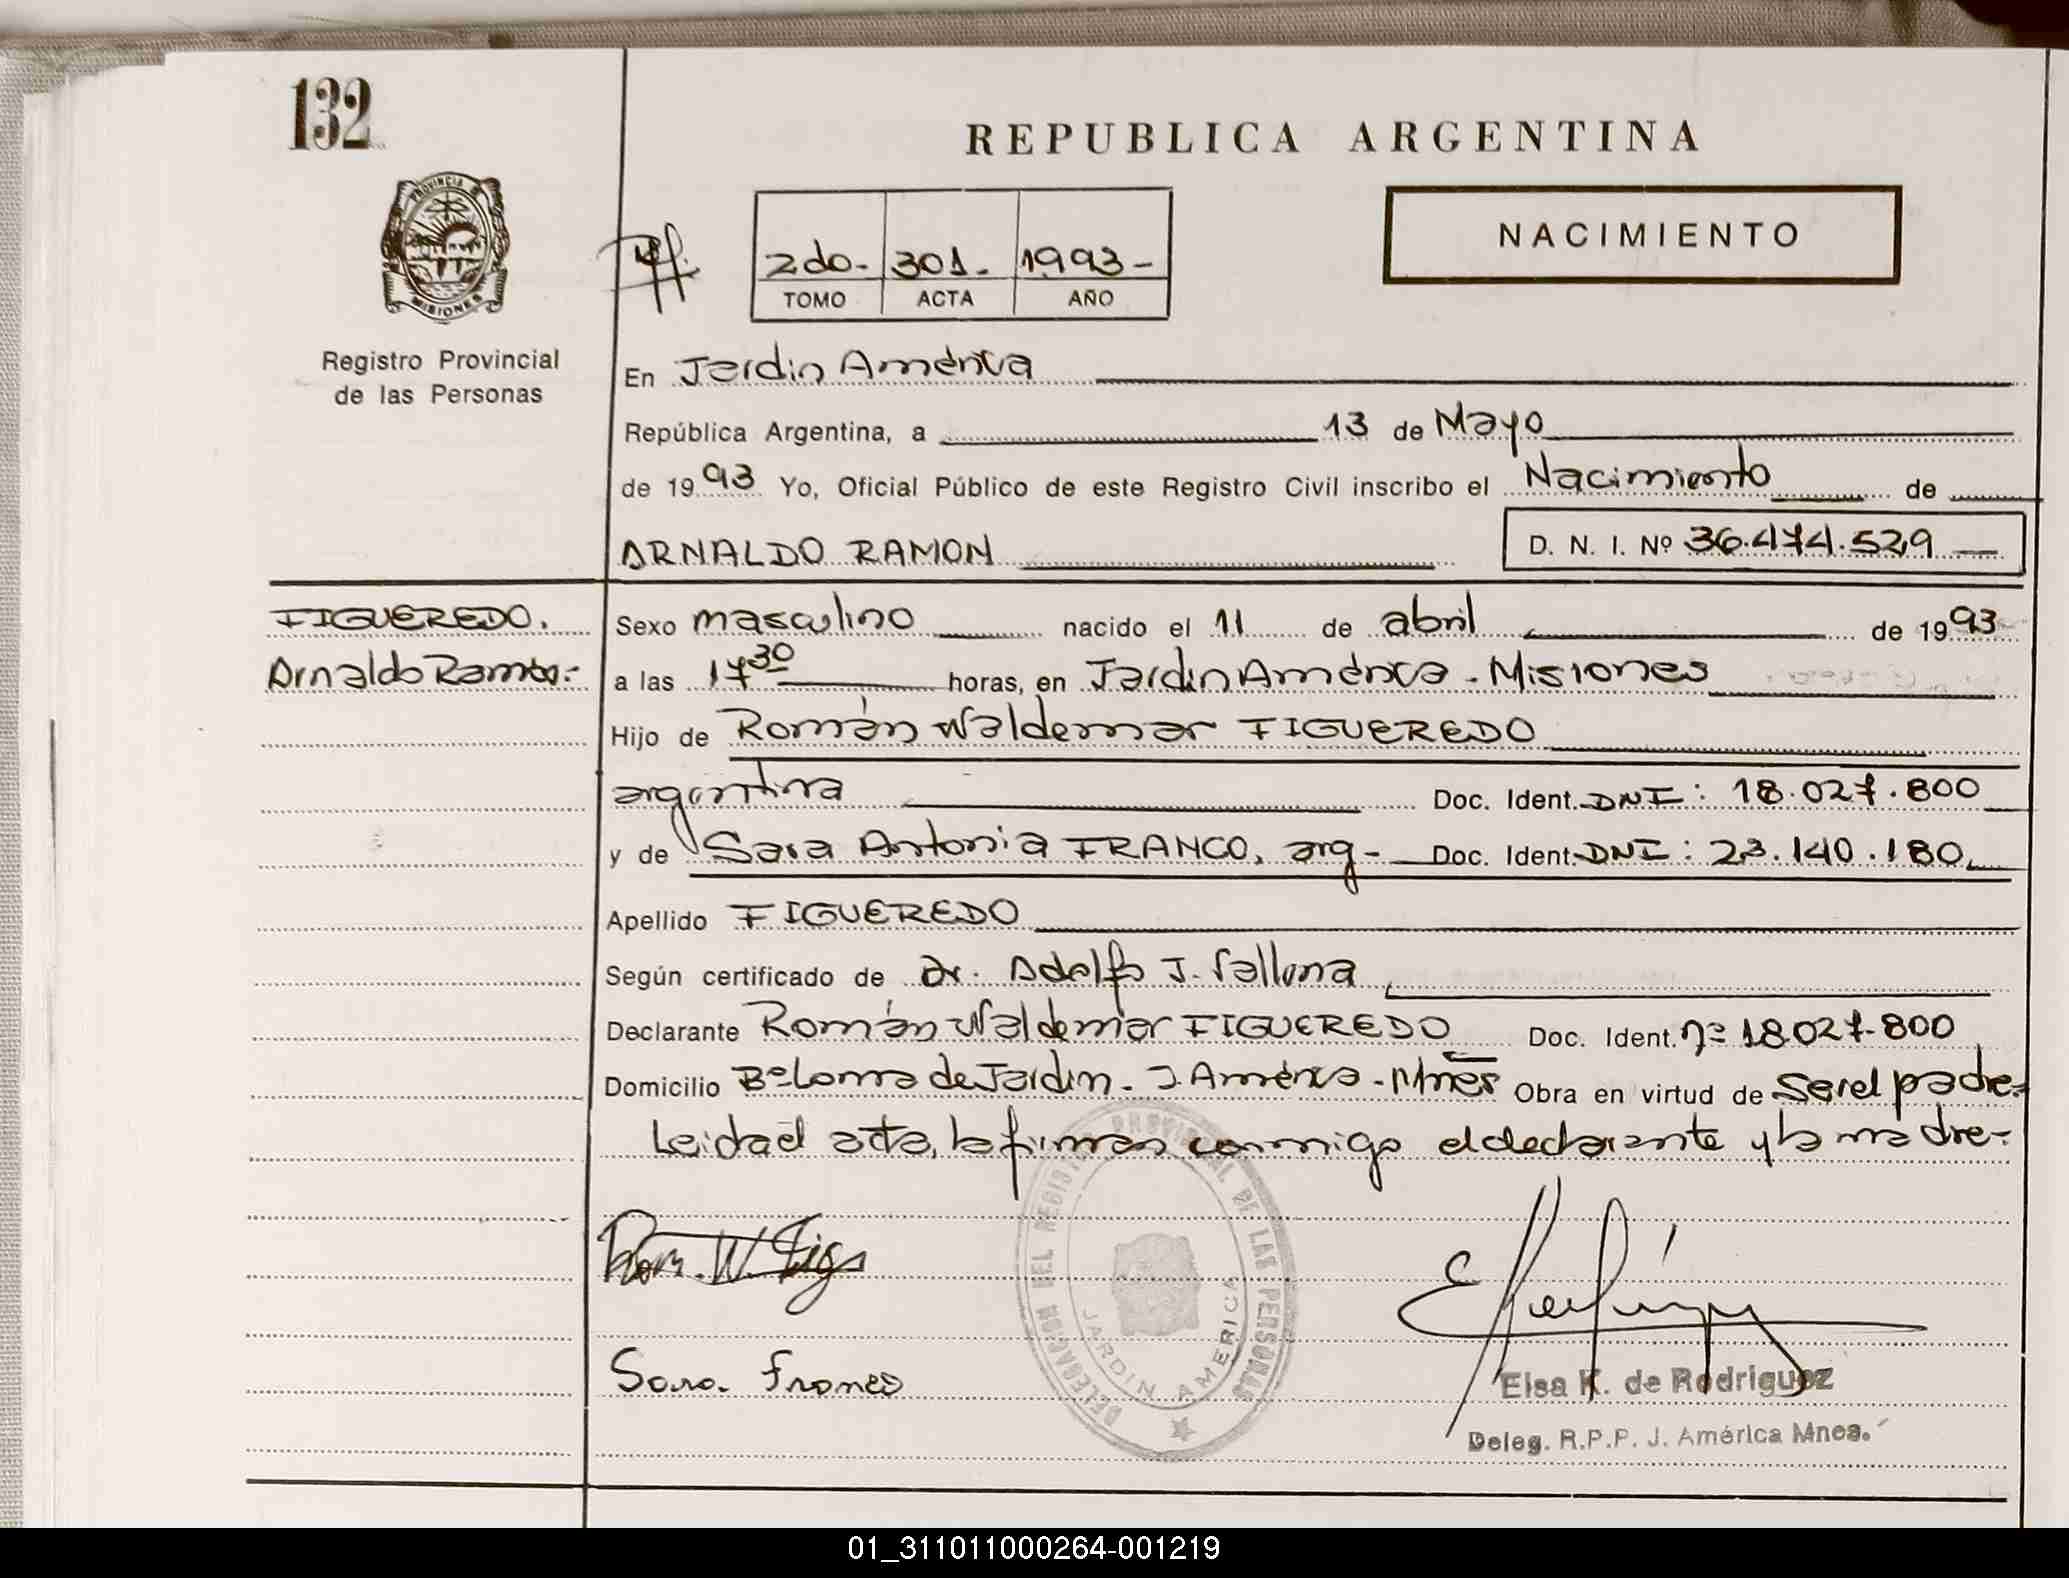 132
REPUBLICA ARGENTINA
PROVINCIA DE
MISIONES
NACIMIENTO
2do.- 301.- 1993-
TOMO ACTA AÑO
Registro Provincial
de las Personas
En Jardin América
República Argentina, a 13 de Mayo
de 1993 Yo, Oficial Público de este Registro Civil inscribo el Nacimiento de
ARNALDO RAMON D. N. I. Nº 36.474.529
FIGUEREDO.
Arnaldo Ramón.-
Sexo masculino nacido el 11 de abril de 1993
a las 17 30 horas, en Jardin América - Misiones
Hijo de Román Waldemar FIGUEREDO
argentina Doc. Ident. DNI: 18.027.800
y de Sara Antonia FRANCO, arg- Doc. Ident. DNI: 23.140.180
Apellido FIGUEREDO
Según certificado de Dr. Adolfo J. Vallona
Declarante Román Waldemar FIGUEREDO Doc. Ident. nº 18.027.800
Domicilio Bº Loma de Jardin - J. América - Mnes Obra en virtud de ser el padre.-
Leida el acta, la firman conmigo el declarante y la madre.-
Rom. W. Figo
Sara Franco
DELEGACION DEL REGISTRO PROVINCIAL DE LAS PERSONAS
JARDIN AMERICA
Elsa K. de Rodriguez
Deleg. R.P.P. J. América Mnes.
01_311011000264-001219